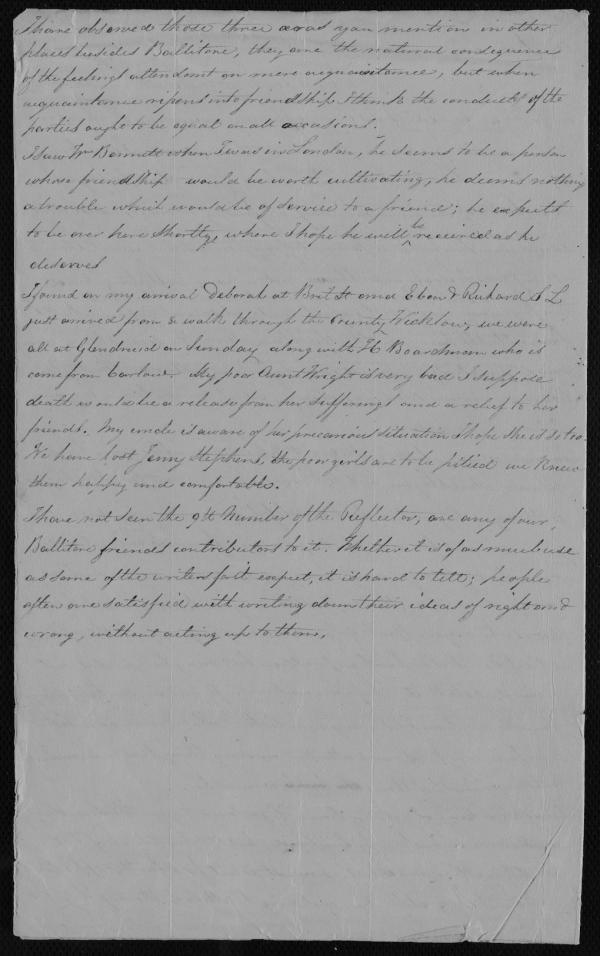 I have observed those three as you mention in other
places besides Ballitore, they are the natural consequence
of the feelings attendant on mere acquaintance, but when
acquaintance ripens into friendship I think the conduct of the
parties ought to be equal on all occasions.
I saw Wm Bennett when I was in London, he seems to be a person
whose friendship would be worth cultivating, he deems nothing
a trouble which would be of service to a friend; he expects
to be over here shortly, where I hope he will be received as he
deserves
I found on my arrival Deborah at Brit St and Eben & Richard S L
just arrived from a walk through the County Wicklow, we were
all at Glendruid on Sunday along with H Boardman who is
come from Carlow. My poor Aunt Wright is very bad I suppose
death would be a release from her sufferings and a relief to her
friends. My uncle is aware of her precarious situation I hope she is so too.
We have lost Jenny Stephens, the poor girls are to be pitied we knew
them happy and comfortable.
I have not seen the 9th Number of the Reflector, are any of our
Ballitore friends contributors to it. Whether it is of as much use
as some of the writers expect, it is hard to tell; people
often are satisfied with writing down their ideas of right and
wrong, without acting up to them.